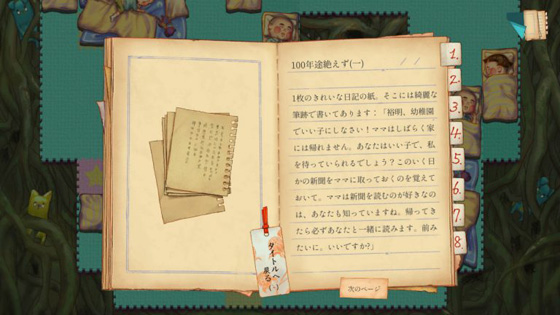 100年途絶えず(一)
1枚のきれいな日記の紙。そこには綺麗な
筆跡で書いてあります：「裕明、幼稚園
でいい子にしなさい！ママはしばらく家
には帰れません。あなたはいい子で、私
を待っていられるでしょう？このいく日
かの新聞をママに取っておくのを覚えて
おいて。ママは新聞を読むのが好きなの
は、あなたも知っていますね。帰ってき
たら必ずあなたと一緒に読みます。前み
たいに。いいですか?」
タイトルへ
戻る
次のページ
1.
2.
3.
4.
5.
6.
7.
8